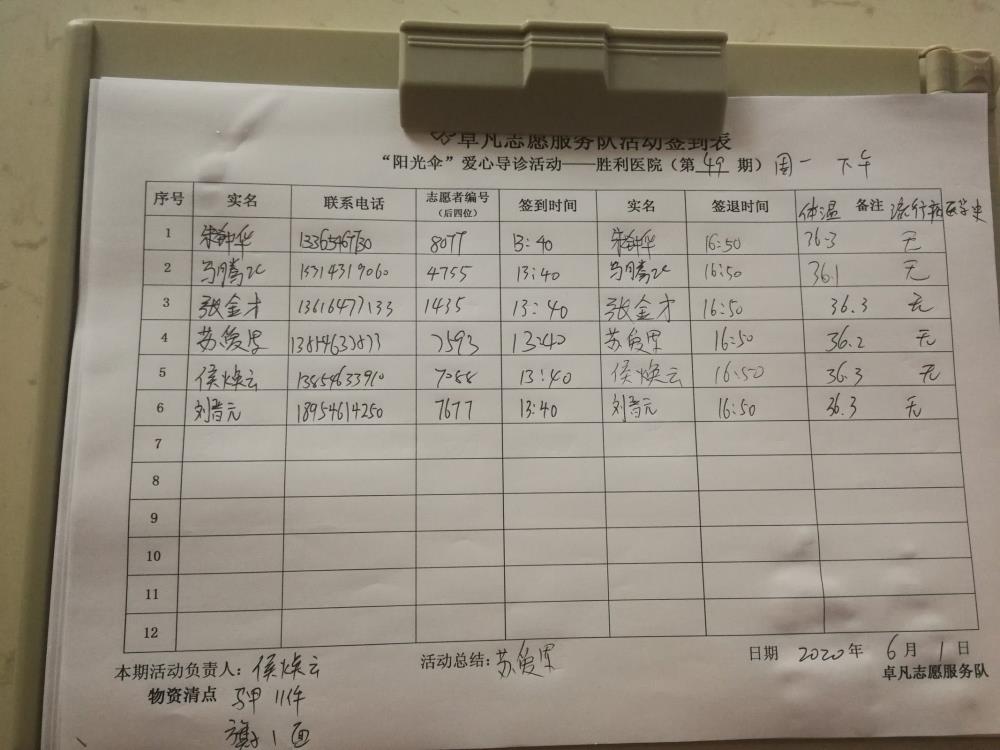 卓凡志愿服务队活动签到表
“阳光伞”爱心导诊活动——胜利医院（第 49 期）周一 下午
序号 实名 联系电话 志愿者编号（后四位） 签到时间 实名 签退时间 体温 备注 流行病医学史
1 朱钟华 13365467130 8077 13:40 朱钟华 16:50 36.3 无
2 马腾飞 15314319060 4755 13:40 马腾飞 16:50 36.1 无
3 张金才 13616477133 1435 13:40 张金才 16:50 36.3 无
4 苏爱 7593 13:40 苏爱 16:50 36.2 无
5 侯焕云 13854633910 7088 13:40 侯焕云 16:50 36.3 无
6 刘晋元 18954614250 7677 13:40 刘晋元 16:50 36.3 无
7
8
9
10
11
12
本期活动负责人：侯焕云 活动总结：苏爱 日期 2020年 6月 1日
物资清点 马甲 11件 卓凡志愿服务队
旗子 1 面